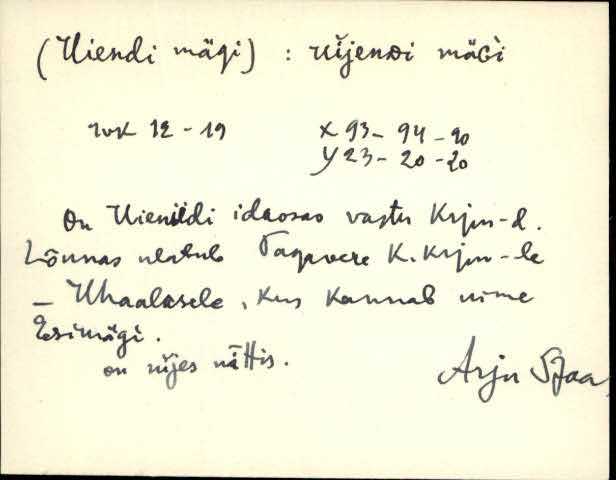 (Uiendi mägi) : uĭjenDi mäGi
rvk 12-19 X 93 - 94 - 90
Y 23 - 20 - 20
On Uienildi idaosas vastu Krjn-d.
Lõunas ulatub Tagavere K. Krjn-le
- Uhaalasele, kus kannab nime
Esimägi.
on uĭjes nättis.
Arju